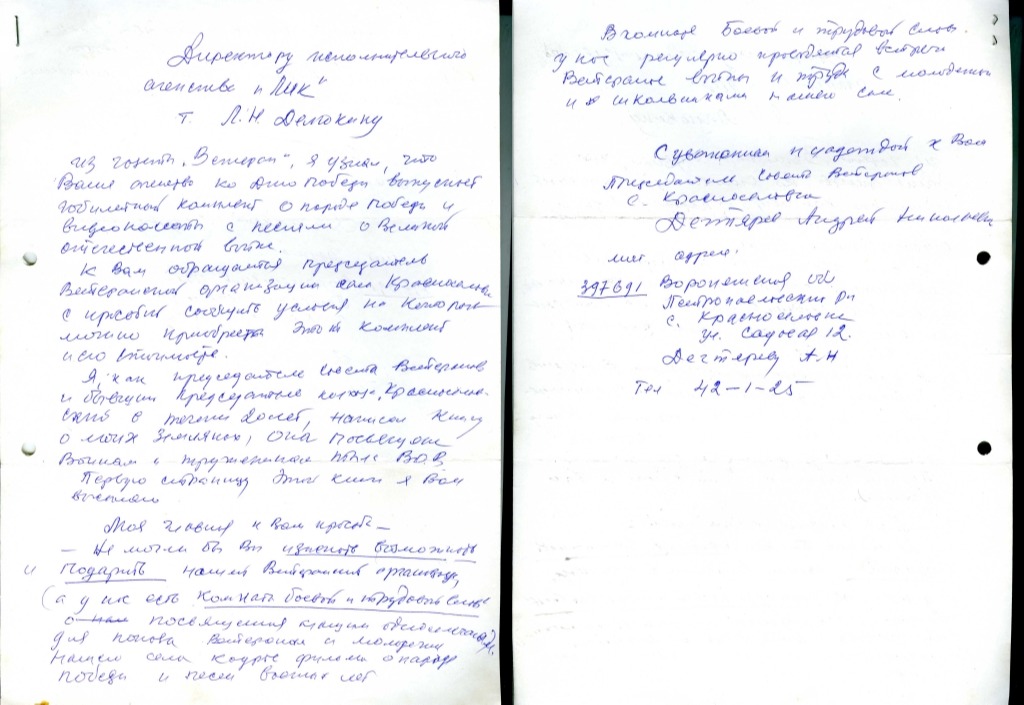 Директору исполнительного
агенства "ЛИК"
т. Л.Н. Долгокину
Из газеты "Ветеран", я узнал, что
Ваше агенство ко Дню Победы выпускает
юбилейный комплект о параде Победы и
видеокассеты с песнями о Великой
отечественной войне.
К Вам обращается председатель
Ветеранской организации села
с просьбой сообщить условия на которых
можно приобрести этот комплект
и его стоимость.
Я, как председатель совета Ветеранов
и бывший председатель
в течении 20 лет, написал книгу
о моих земляках, она посвящена
Воинам и труженикам тыла В.О.В.
Первую страницу этой книги я Вам
высылаю.
Моя главная к Вам просьба –
– Не могли бы Вы изыскать возможность
и подарить нашей Ветеранской организации,
(а у нас есть Комната боевой и трудовой славы
о посвящения
для показа Ветеранам и молодежи
нашего села кадры фильма о параде
Победы и песен военных лет
В комнате боевой и трудовой славы.
у нас регулярно проводятся встречи
Ветеранов войны и труда с молодежью
и школьниками нашего села.
С уважением и надеждой к Вам
Председатель совета Ветеранов
с.
Дегтярев Андрей Николаевич
мой адрес.
397691 Воронежская об
Петропавловский р-н
с.
ул. Садовая 12.
Дегтяреву А.Н
Тел 42–1–25